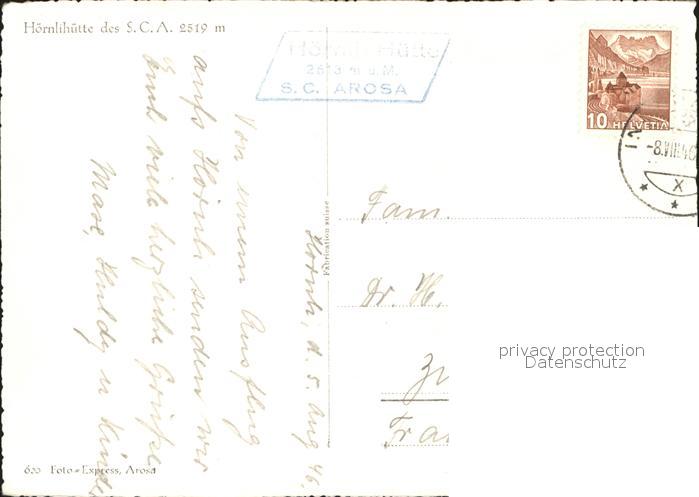 Hörnlihütte des S.C.A. 2519 m
Hörnli-Hütte
2513 m ü.M.
S.C. AROSA
10 HELVETIA
-8.VIII.46
X
Hörnli, d. 5. Aug 46.
Von einem Ausflug
aufs Hörnli senden wir
Euch viele herzliche Grüsse
Max, Huldy u Kinder
Fabrication suisse
Fam.
Dr. H.
Zü
Fra
privacy protection
Datenschutz
600 Foto-Express, Arosa